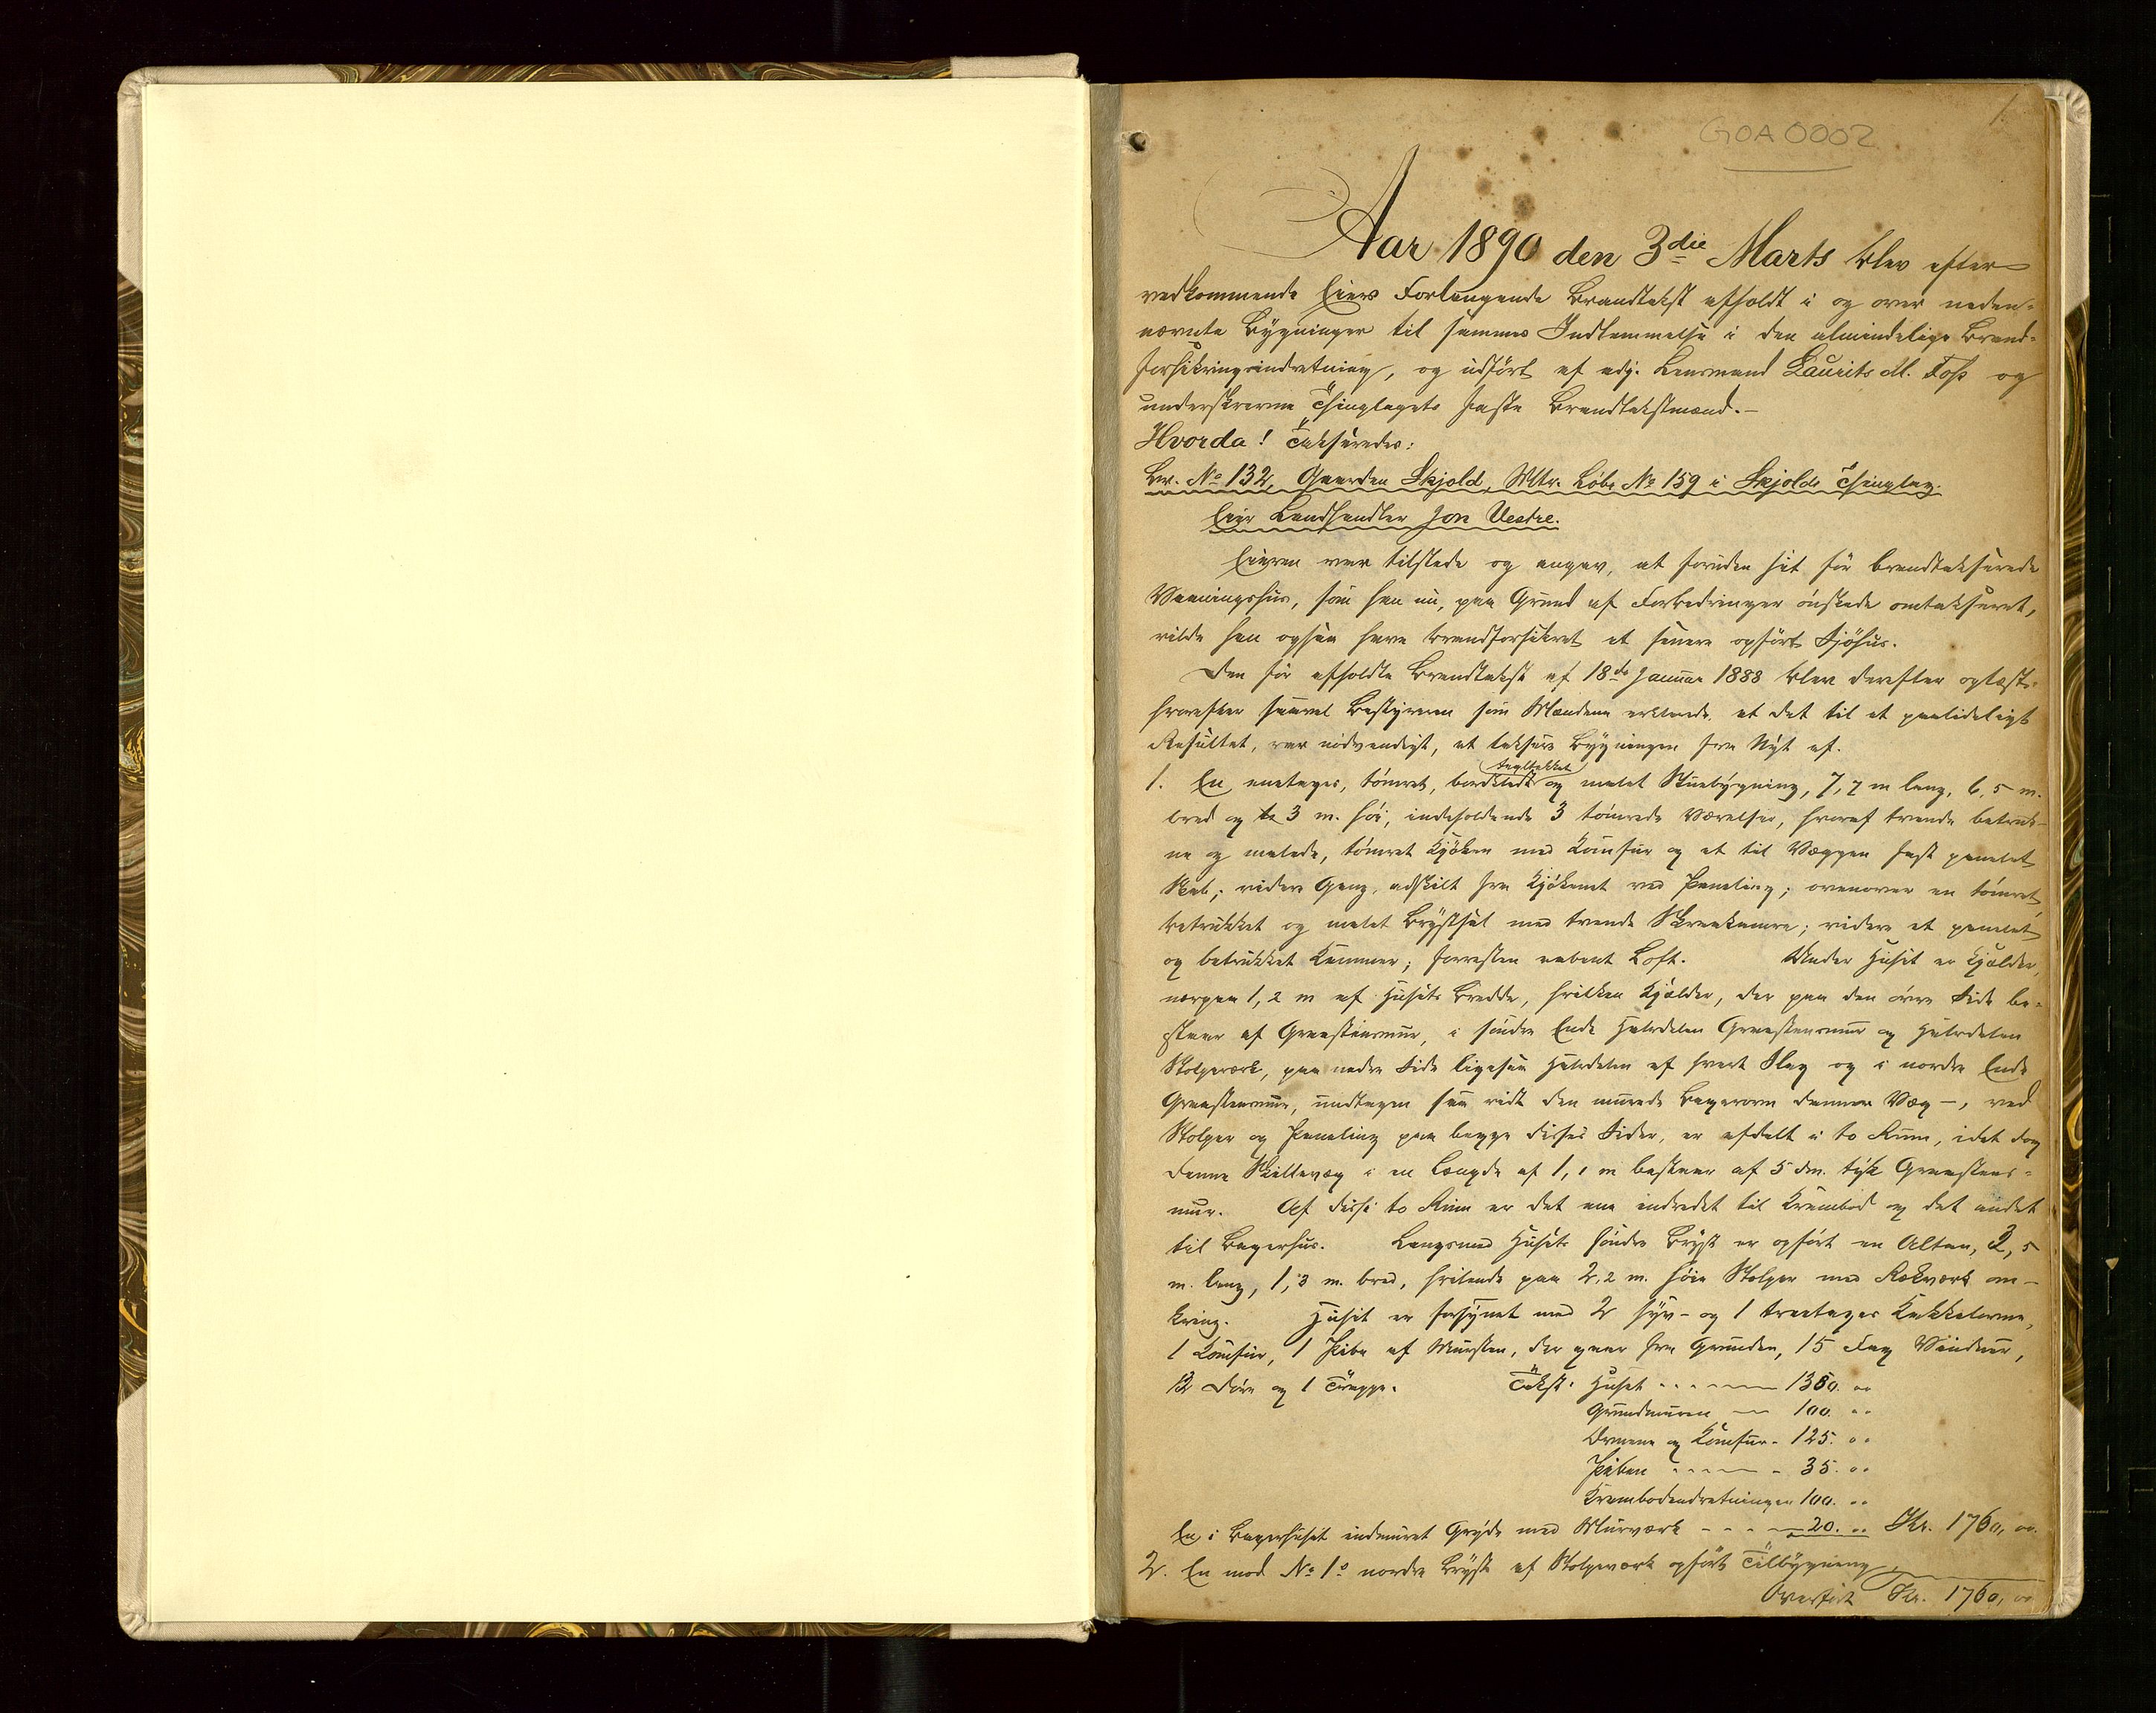 1.
GOA0002
Aar 1890 den 3die Marts blev efter
vedkommende Eiers Forlangende Brandtakst afholdt i og over neden-
nævnte Bygninger til sammes Indlemmelse i den almindelige Brand-
forsikringsindretning, og udført af adj. Lensmand Laurits M. Foss og
underskrevne Thinglagets faste Brandtakstmænd.-
Hvorda! Taxeredes:
Br. No 132, Gaarden Skjold, Mtr. Løbe No 159 i Skjolds Thinglag.
Eier Landhandler Jon Vestre.
Eieren var tilstede og angav, at foruden sit før brandtakserede
Vaaningshus, som han nu, paa Grund af Forbedringer ønskede omtakseret,
vilde han ogsaa have brandforsikret et senere opført Sjøhus.
Den før afholdte Brandtakst af 18de Januar 1888 blev derefter oplæst,
hvorefter saavel Bestyreren som Mændene erklærede, at det til et paalideligt
Resultat, var nødvendigt, at taksere Bygningen fra Nyt af.
1. En enetages, tømret, bordklædt tegltækket og malet Stuebygning, 7,7 m lang, 6,5 m.
bred og 3 m. høi, indeholdende 3 tømrede Værelser, hvoraf tvende betruk-
ne og malede, tømret Kjøken med Komfur og et til Væggen fast panelet
Skab; videre Gang, adskilt fra Kjøkenet ved Paneling; ovenover en tømret,
betrukket og malet Brystsal med tvende Skraakamre; videre et panelet
og betrukket Kammer; forresten aabent Loft. Under Huset er Kjælder,
norpaa 1,2 m af Husets Bredde, hvilken Kjælder, der paa den øvre Side be-
staar af Graastensmur, i søndre Ende Halvdelen Graastensmur og Halvdelen
Stolpeværk, paa nedre Side ligesaa Halvdelen af hvert Slag og i nordre Ende
Graastensmur, undtagen saa vidt den murede Bagerovn danner Væg -, ved
Stolper og Paneling paa begge disses Sider, er afdelt i to Rum, idet dog
denne Skillevæg i en Længde af 1,1 m bestaar af 5 dm. tyk Graastens-
mur. Af disse to Rum er det ene indredet til Krambod og det andet
til Bagerhus. Langsmed Husets søndre Bryst er opført en Altan, 3,5
m. lang, 1,3 m. bred, hvilende paa 2,2 m. høie Stolper med Rækværk om-
kring. Huset er forsynet med 2 syv- og 1 treetages Kakkelovne,
1 Komfur, 1 Pibe af Mursten, der gaar fra Grunden, 15 Fag Vinduer,
12 Døre og 1 Trappe. Takst: Huset 1380. "
Grundmuren 100. "
Ovnene og Komfur 125. "
Piben 35. "
Krambodindretningen 100. "
En i Bagerhuset indmuret Gryde med Murværk 20. " Kr. 1760, 00.
2. En mod No 1s nordre Bryst af Stolpeværk opført Tilbygning,
Overført Kr. 1760, 00